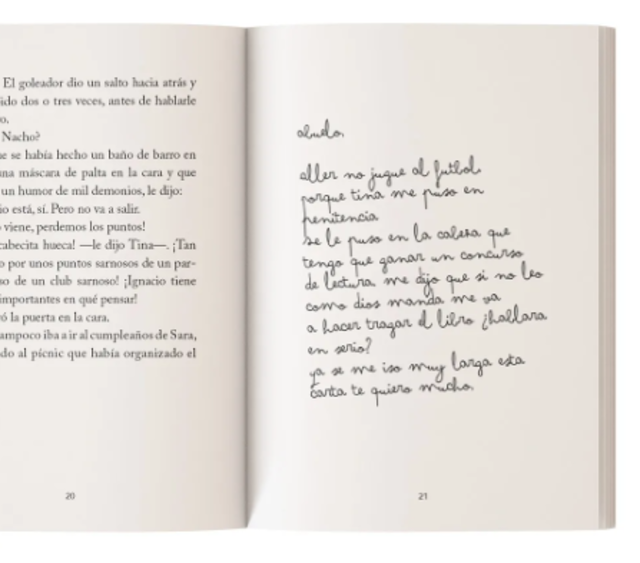 El goleador dio un salto hacia atrás y
ido dos o tres veces, antes de hablarle
o.
Nacho?
e se había hecho un baño de barro en
na máscara de palta en la cara y que
un humor de mil demonios, le dijo:
io está, sí. Pero no va a salir.
viene, perdemos los puntos!
cabecita hueca! —le dijo Tina—. ¡Tan
o por unos puntos sarnosos de un par-
so de un club sarnoso! ¡Ignacio tiene
importantes en qué pensar!
ó la puerta en la cara.
ampoco iba a ir al cumpleaños de Sara,
do al pícnic que había organizado el
20
abuelo,
aller no jugue al futbol,
porque tina me puso en
penitencia
se le puso en la cabesa que
tengo que ganar un concurso
de lectura, me dijo que si no leo
como dios manda me va
a hacer tragar el libro ¿hablara
en serio?
ya se me iso muy larga esta
carta te quiero mucho,
21